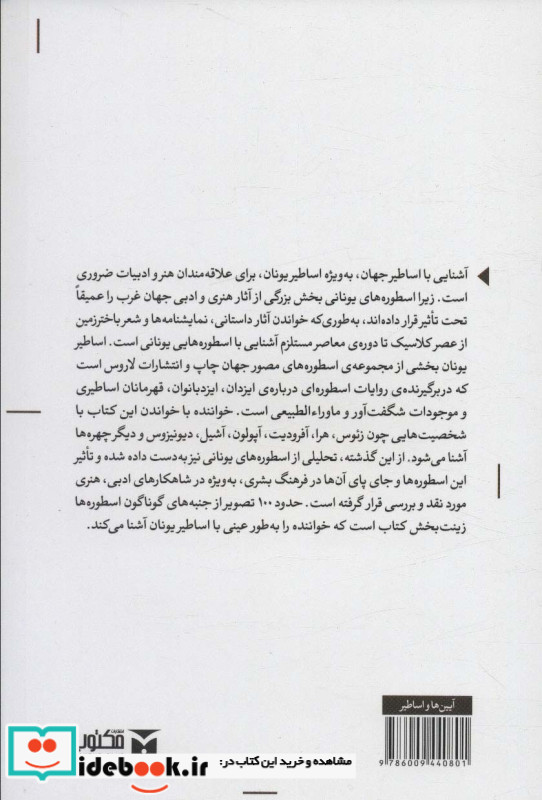 آشنایی با اساطیر جهان، به‌ویژه اساطیر یونان، برای علاقه‌مندان هنر و ادبیات ضروری
است. زیرا اسطوره‌های یونانی بخش بزرگی از آثار هنری و ادبی جهان غرب را عمیقاً
تحت تأثیر قرار داده‌اند، به‌طوری‌که خواندن آثار داستانی، نمایشنامه‌ها و شعر باخترزمین
از عصر کلاسیک تا دوره‌ی معاصر مستلزم آشنایی با اسطوره‌هایی یونانی است. اساطیر
یونان بخشی از مجموعه‌ی اسطوره‌های مصور جهان چاپ و انتشارات لاروس است
که دربرگیرنده‌ی روایات اسطوره‌ای درباره‌ی ایزدان، ایزدبانوان، قهرمانان اساطیری
و موجودات شگفت‌آور و ماوراءالطبیعی است. خواننده با خواندن این کتاب با
شخصیت‌هایی چون زئوس، هرا، آفرودیت، آپولون، آشیل، دیونیزوس و دیگر چهره‌ها
آشنا می‌شود. از این گذشته، تحلیلی از اسطوره‌های یونانی نیز به‌دست داده شده و تأثیر
این اسطوره‌ها و جای پای آن‌ها در فرهنگ بشری، به‌ویژه در شاهکارهای ادبی، هنری
مورد نقد و بررسی قرار گرفته است. حدود ۱۰۰ تصویر از جنبه‌های گوناگون اسطوره‌ها
زینت‌بخش کتاب است که خواننده را به‌طور عینی با اساطیر یونان آشنا می‌کند.
آیین‌ها و اساطیر
9 786009 440801
انتشارات
مکتوب
مشاهده و خرید این کتاب در:
idebook.ir